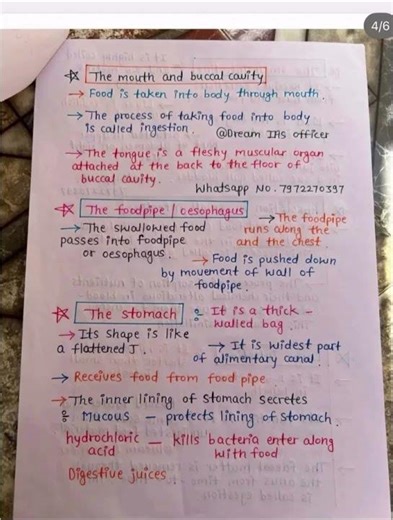 4/6
The mouth and buccal cavity
→ Food is taken into body through mouth.
→ The process of taking food into body
is called ingestion. @Dream IAS officer
→ The tongue is a fleshy muscular organ
attached at the back to the floor of
buccal cavity.
Whatsapp No. 7972270397
The foodpipe / oesophagus
→ The foodpipe
runs along the
and the chest.
→ The swallowed food
passes into foodpipe
or oesophagus.
→ Food is pushed down
by movement of wall of
foodpipe.
The stomach : It is a thick -
walled bag.
→ Its shape is like
a flattened J.
→ It is widest part
of alimentary canal.
→ Receives food from food pipe
→ The inner lining of stomach secretes
: Mucous - protects lining of stomach.
hydrochloric - kills bacteria enter along
acid with food
Digestive juices -